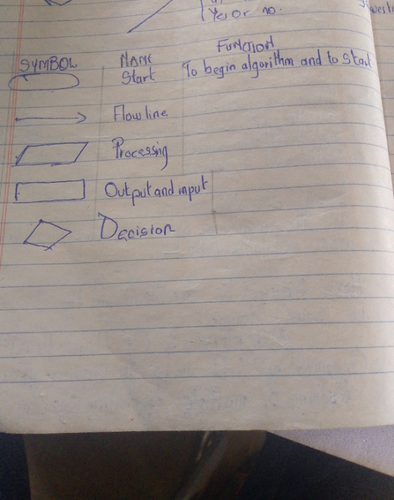 Yes or no.
SYMBOL NAME Function
Start To begin algorithm and to start
Flow line
Processing
Output and input
Decision